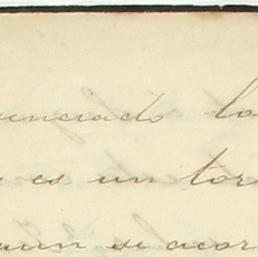 unciado la
es un tor
aun se acor